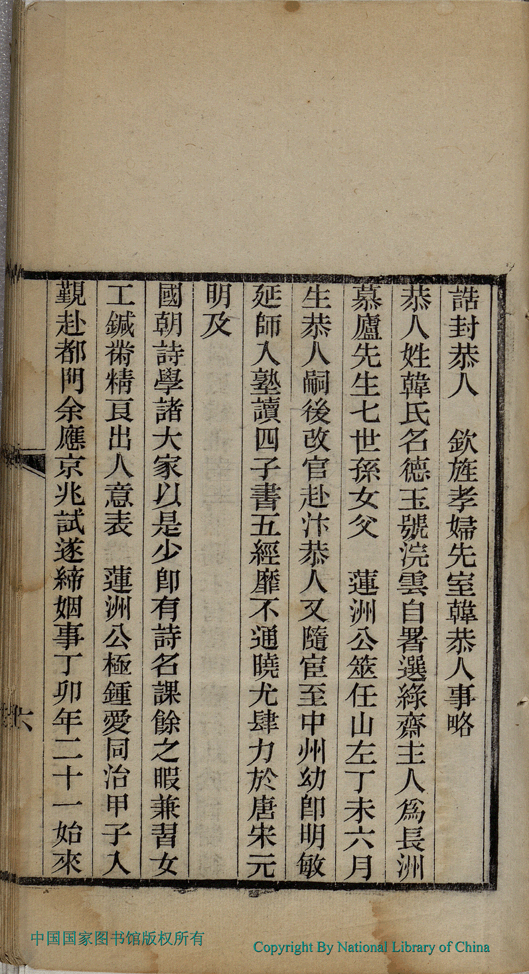 誥封恭人　欽旌孝婦先室韓恭人事略
恭人姓韓氏名德玉號浣雲自署選綠齋主人爲長洲
慕廬先生七世孫女父　蓮洲公筮任山左丁未六月
生恭人嗣後改官赴汴恭人又隨宦至中州幼卽明敏
延師入塾讀四子書五經靡不通曉尤肆力於唐宋元
明及
國朝詩學諸大家以是少卽有詩名課餘之暇兼習女
工鍼黹精良出人意表　蓮洲公極鍾愛同治甲子入
覲赴都門余應京兆試遂締姻事丁卯年二十一始來
六
中国国家图书馆版权所有
Copyright By National Library of China